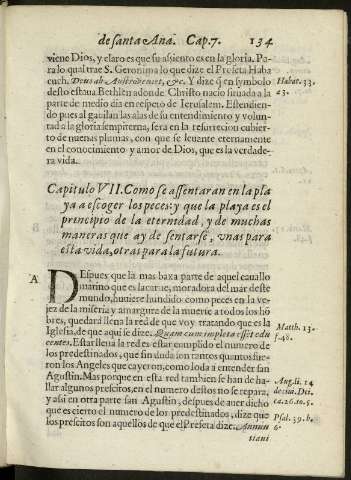 de santa Ana. Cap.7. 134
viene Dios, y claro es que su assiento es en la gloria. Pa-
ra lo qual trae S. Geronimo lo que dize el Profeta Haba
cuch. Deus ab Austro veniet, &c. Y dize q̃ en symbolo Habac. 33.
desto estaua Bethlen adonde Christo nacio situada a la 23.
parte de medio dia en respeto de Ierusalem. Estendien-
do pues al gauilan las alas de su entendimiento y volun-
tad a la gloria sempiterna, sera en la resurrecion cubier-
to de nueuas plumas, con que se leuante eternamente
en el conocimiento y amor de Dios, que es la verdade-
ra vida.
Capitulo VII. Como se assentaran en la pla
ya a escoger los peces: y que la playa es el
principio de la eternidad, y de muchas
maneras que ay de sentarse, vnas para
esta vida, otras para la futura.
A
DEspues que la mas baxa parte de aquel cauallo
marino que es la carne, moradora del mar deste
mundo, huuiere hundido como peces en la ve-
jez de la miseria y amargura de la muerte a todos los hõ
bres, quedará llena la red de que voy tratando que es la
Iglesia, de que aqui se dize. Quam cum impleta esset edu Matth. 13.
centes. Estar llena la red es estar cumplido el numero de f.48.
los predestinados, que sin duda son tantos quantos fue-
ron los Angeles que cayeron, como lo da a entender san
Agustin. Mas porque en esta red tambien se han de ha- Aug. li. 14
llar algunos prescitos, en el numero destos no se repara, de ciu. Dei.
y assi en otra parte san Agustin, despues de auer dicho ca. 26. 10. 5.
que es cierto el numero de los predestinados, dize que Psal. 39. b.
los prescitos son aquellos de que el Profeta dize. Annun 6.
tiaui